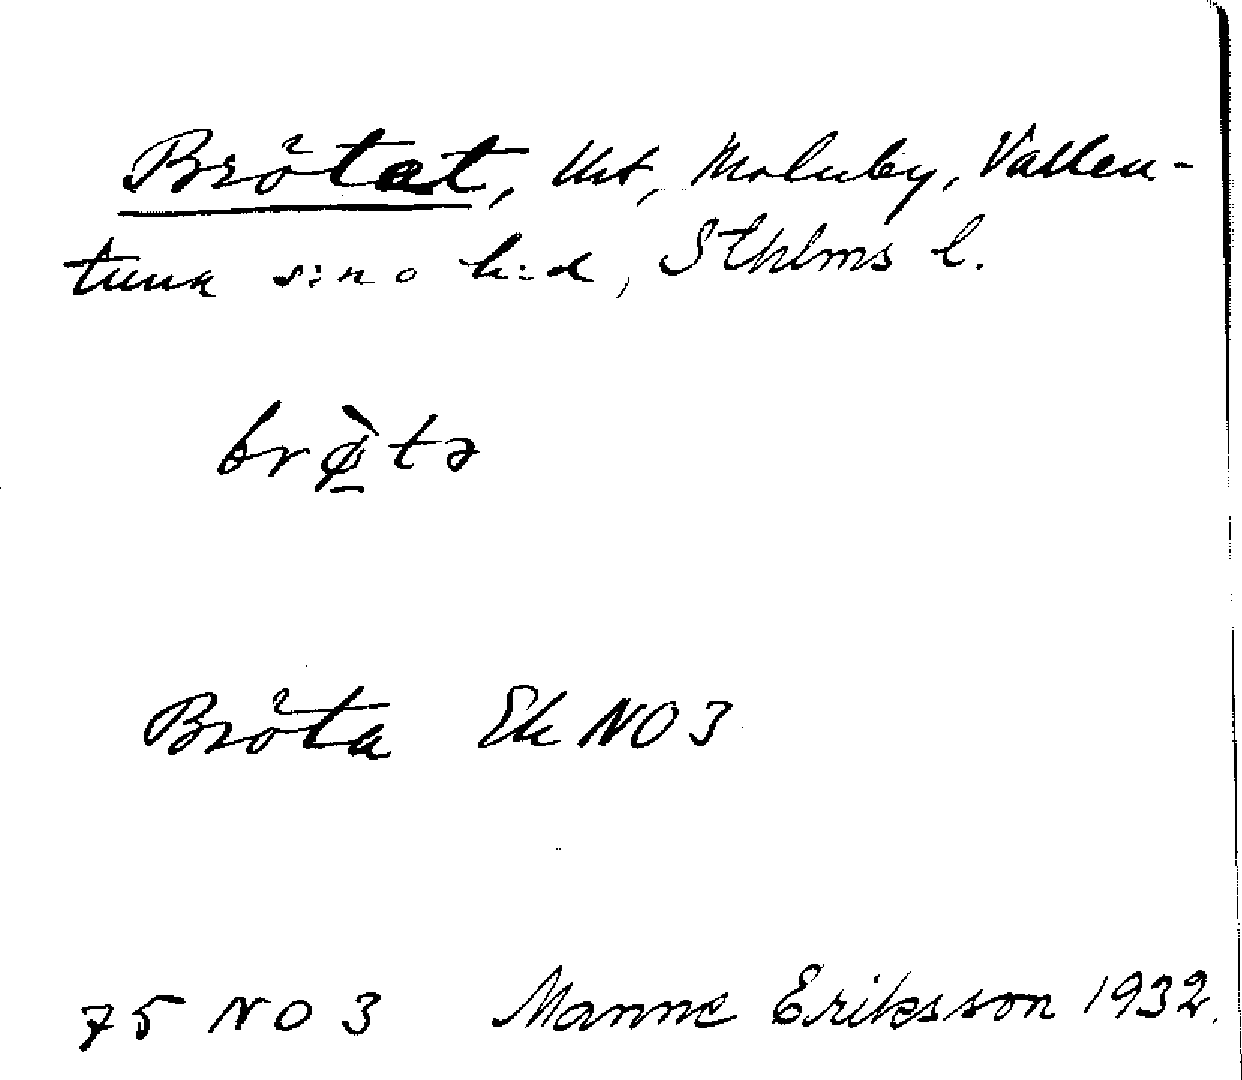 Brötet, Urt, Molnby, Vallen-
tuna s:n o h:d, Sthlms l.
brø̠̀tə
Bröta Ek NO 3
75 NO 3 Manne Eriksson 1932.